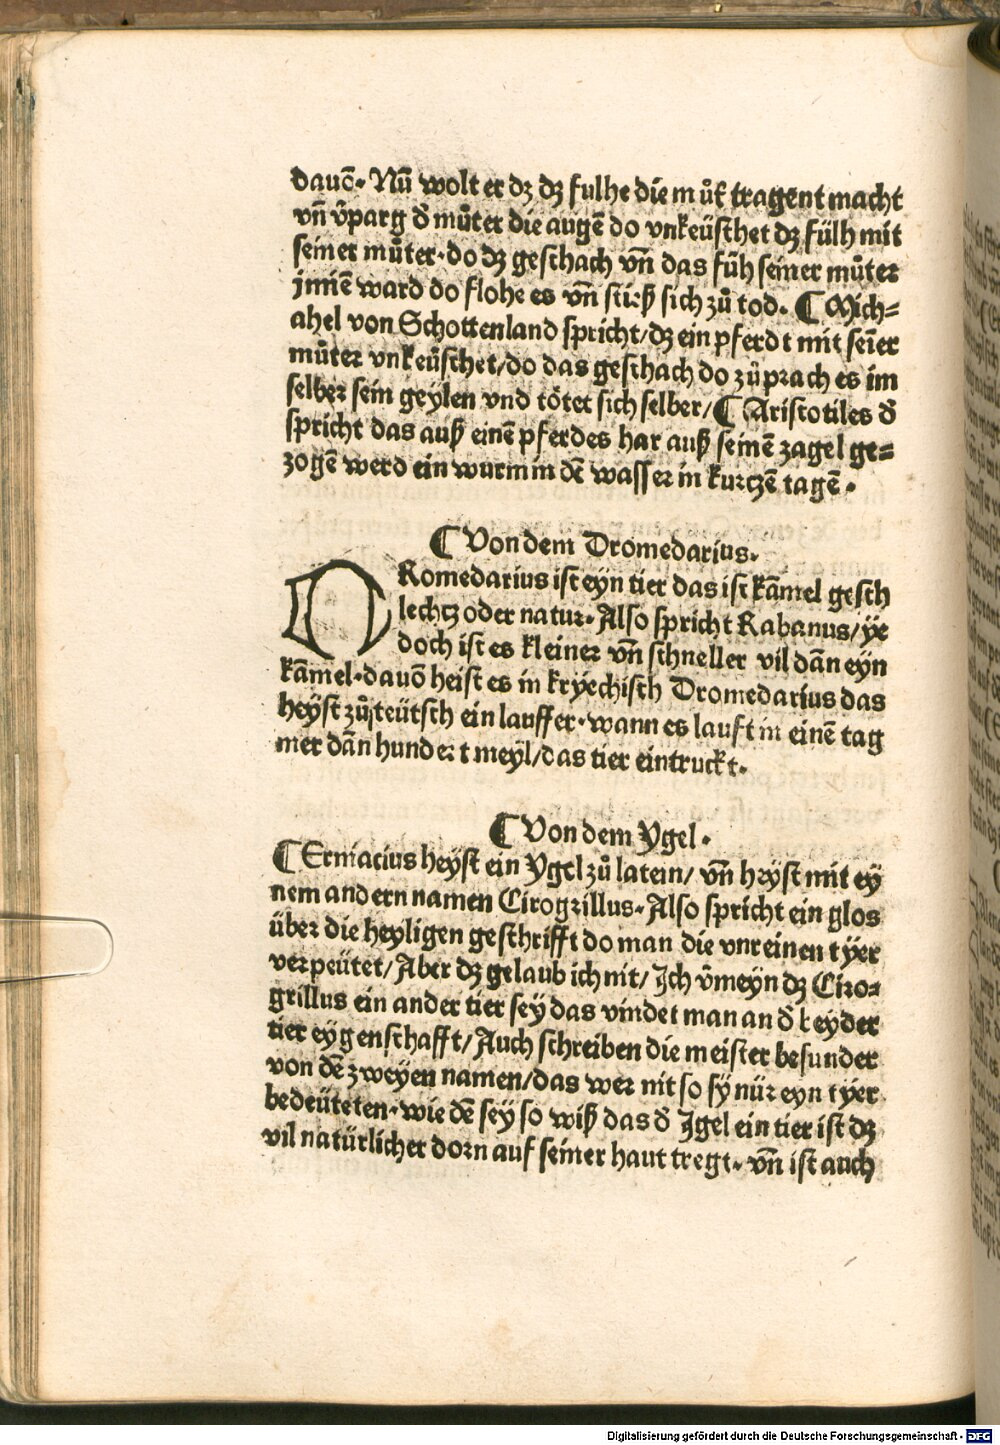 dauō. Nū wolt er dz dz fulhe die můt̄ tragent macht
vn̄ v̄parg d̄ můter die augē do vnkeüschet dz fülh mit
seiner můter. do dz geschach vn̄ das füh seiner můter
jnnē ward do flohe es vn̄ stieß sich zů tod. ¶ Mich=
ahel von Schottenland spricht/dz ein pferdt mit sein̄er
můter vnkeůschet/do das geschach do zůprach es im
selber sein geylen vnd tötet sich selber/¶ Aristotiles d̄
spricht das auß einē pferdes har auß seinē zagel ge=
zogē werd ein wurm in dē wasser in kurtzē tagē.
¶ Von dem Dromedarius.
DRomedarius ist eyn tier das ist kāmel gesch
lechtz oder natur. Also spricht Rabanus/ye
doch ist es kleiner vn̄ schneller vil dān eyn
kāmel. dauō heist es in kryechisch Dromedarius das
heyst zů teütsch ein lauffer. wann es lauft in einē tag
mer dān hundert meyl/das tier eintruckt.
¶ Von dem Ygel.
¶ Erniacius heyst ein Ygel zů latein/ vn̄ heyst mit ey
nem andern namen Cirogrillus. Also spricht ein glos
über die heyligen geschrifft do man die vnreinen tyer
verpeütet/Aber dz gelaub ich nit/ Ich v̄meyn dz Ciro=
grillus ein ander tier sey das vindet man an d̄ beyder
tier eygenschafft/Auch schreiben die meister besunder
von dē zweyen namen/das wer nit so sy nür eyn tyer
bedeüteten. wie dē sey so wiß das d̄ Igel ein tier ist dz
vil natürlicher dorn auf seiner haut tregt. vn̄ ist auch
Digitalisierung gefördert durch die Deutsche Forschungsgemeinschaft - DFG